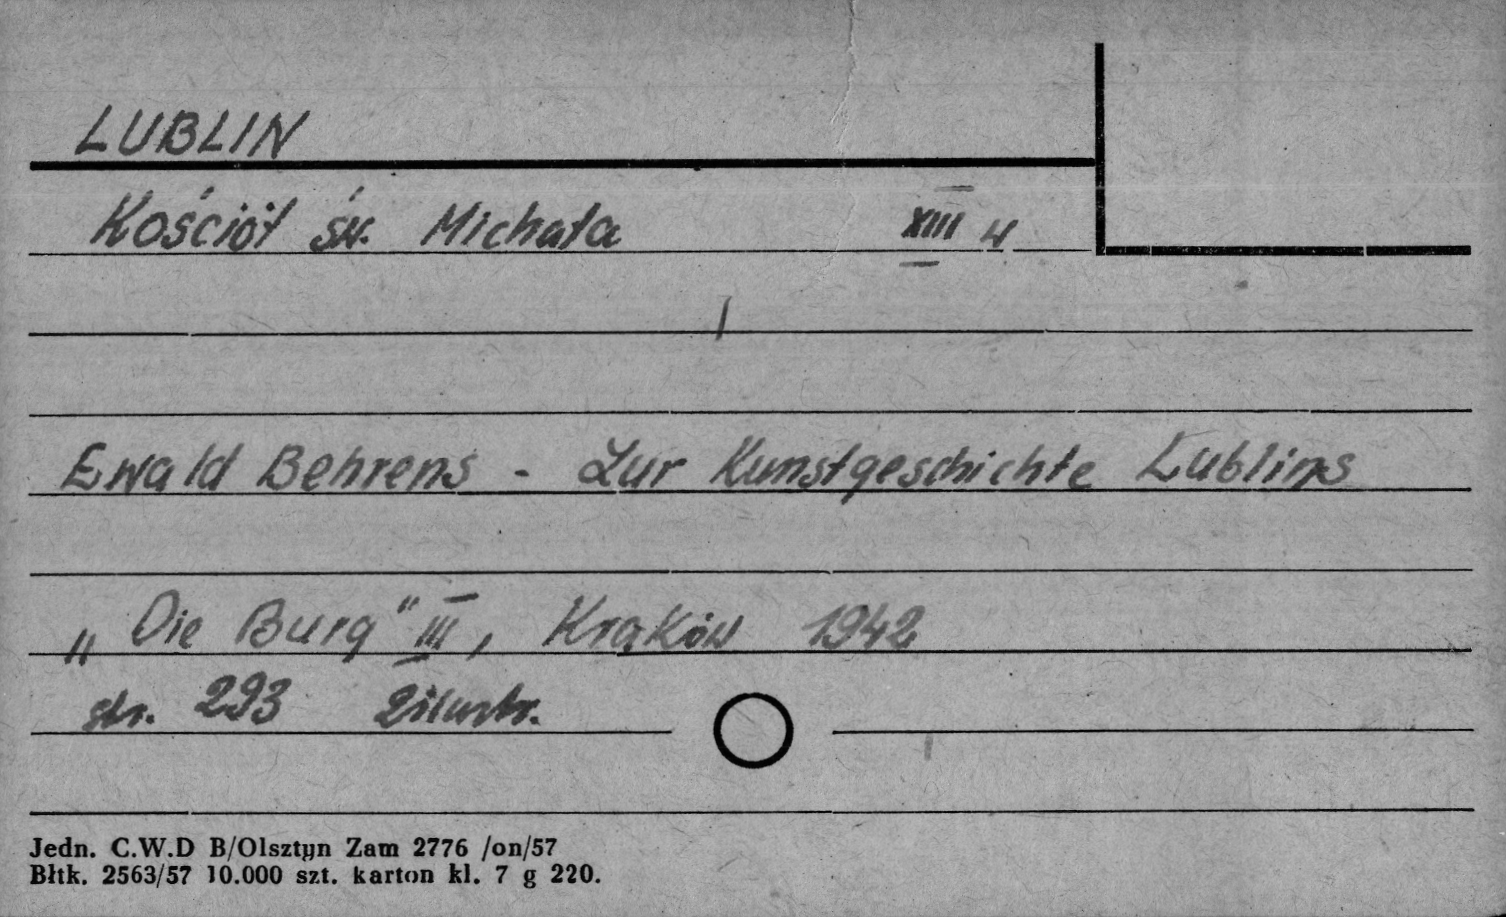 LUBLIN
Kościół św. Michała XIII w
Ewald Behrens - Zur Kunstgeschichte Lublins
„Die Burg" III, Kraków 1942
str. 293 2 ilustr.
Jedn. C.W.D B/Olsztyn Zam 2776 /on/57
Błtk. 2563/57 10.000 szt. karton kl. 7 g 220.